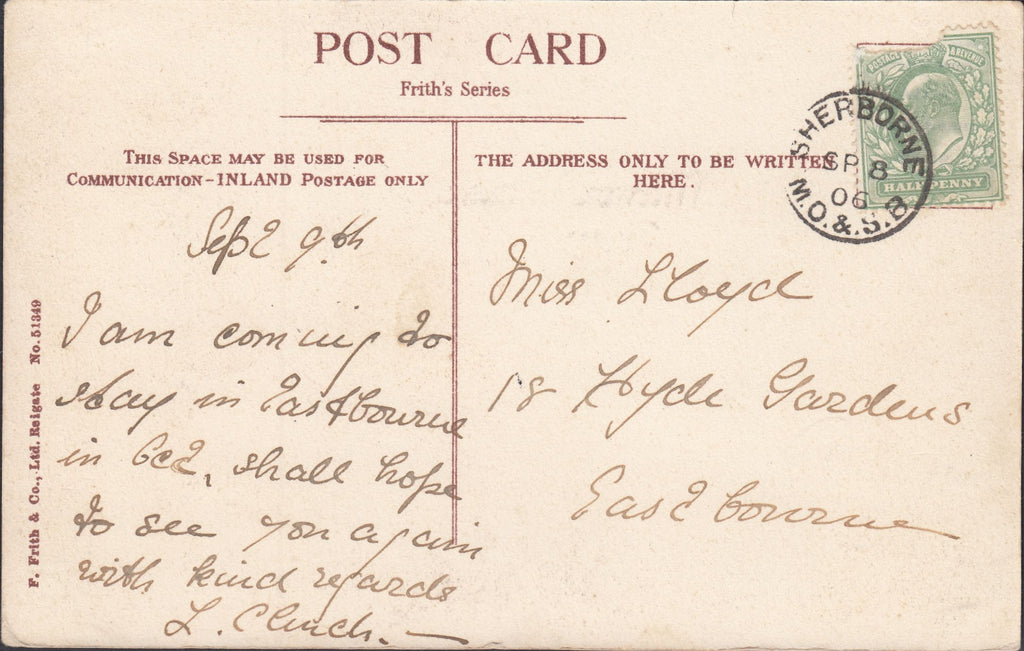 POST CARD
Frith's Series
THIS SPACE MAY BE USED FOR
COMMUNICATION-INLAND POSTAGE ONLY
THE ADDRESS ONLY TO BE WRITTEN
HERE.
POSTAGE & REVENUE
HALFPENNY
SHERBORNE
SP 8
06
M.O.&.S.B
Sept 9th
I am coming to
stay in Eastbourne
in Oct, shall hope
to see you again
with kind regards
L. Clinch.
Miss Lloyd
18 Hyde Gardens
Eastbourne
F. Frith & Co., Ltd. Reigate No. 51349